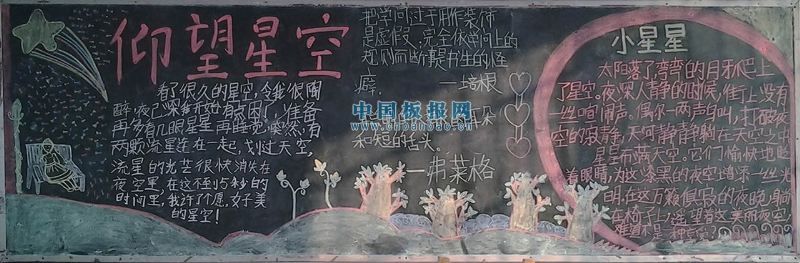 仰望星空
看了很久的星空,令我很陶
醉,夜已深我开始有点困了,准备
再多看几眼星星再睡觉,突然,有
两颗流星连在一起,划过天空,
流星的光芒很快消失在
夜空里,在这不到15秒的
时间里,我许了个愿,好美
的星空!
把学问过于用作装饰
是虚假;完全依学问上的
规则而断事是书生的怪
癖。——培根
中国板报网
www.chbanbao.cn
和短的舌头。
——弗莱格
小星星
太阳落了,弯弯的月牙爬上
了星空。夜深人静的时候,街上没有
一丝喧闹声。偶尔一两声的叫,打破夜
空的寂静。天河静静躺在天空当中
星星布满天空。它们愉快地眨
着眼睛,为这漆黑的夜空增添一丝光
明。在这万籁俱寂的夜晚,躺
在椅子上遥望着这美丽夜空,
难道不是一种享受?